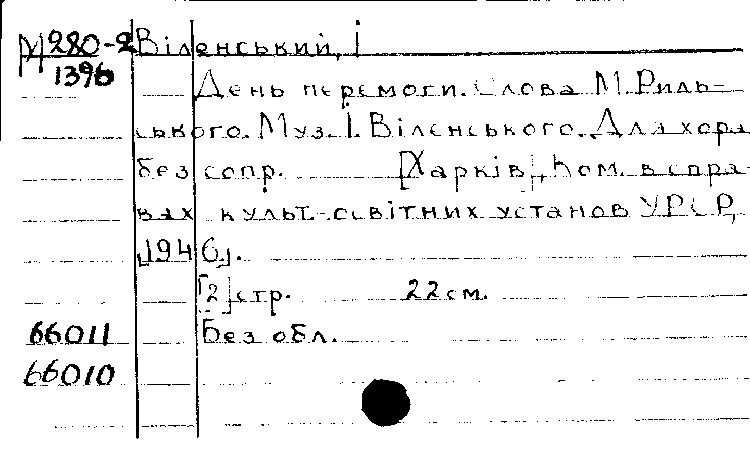 М 280-2 Віленський, І
1396
День перемоги. Слова М. Риль-
ського. Муз. І. Віленського. Для хора
без сопр. [Харків], Ком. в спра-
вах культ.-освітних установ УРСР,
[1946].
[2] стр. 22 см.
66011 Без обл.
66010